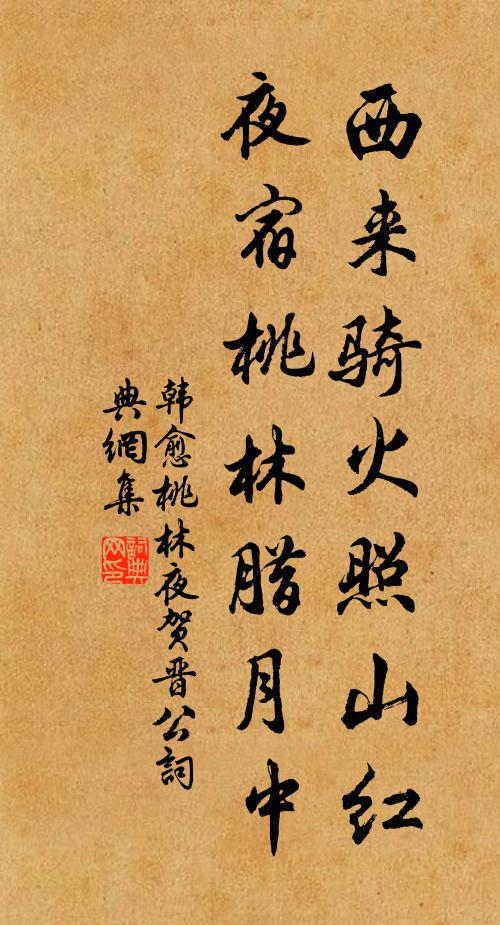 西来骑火照山红
夜宿桃林腊月中
韩愈桃林夜贺晋公詞
典網集
詞典
网印